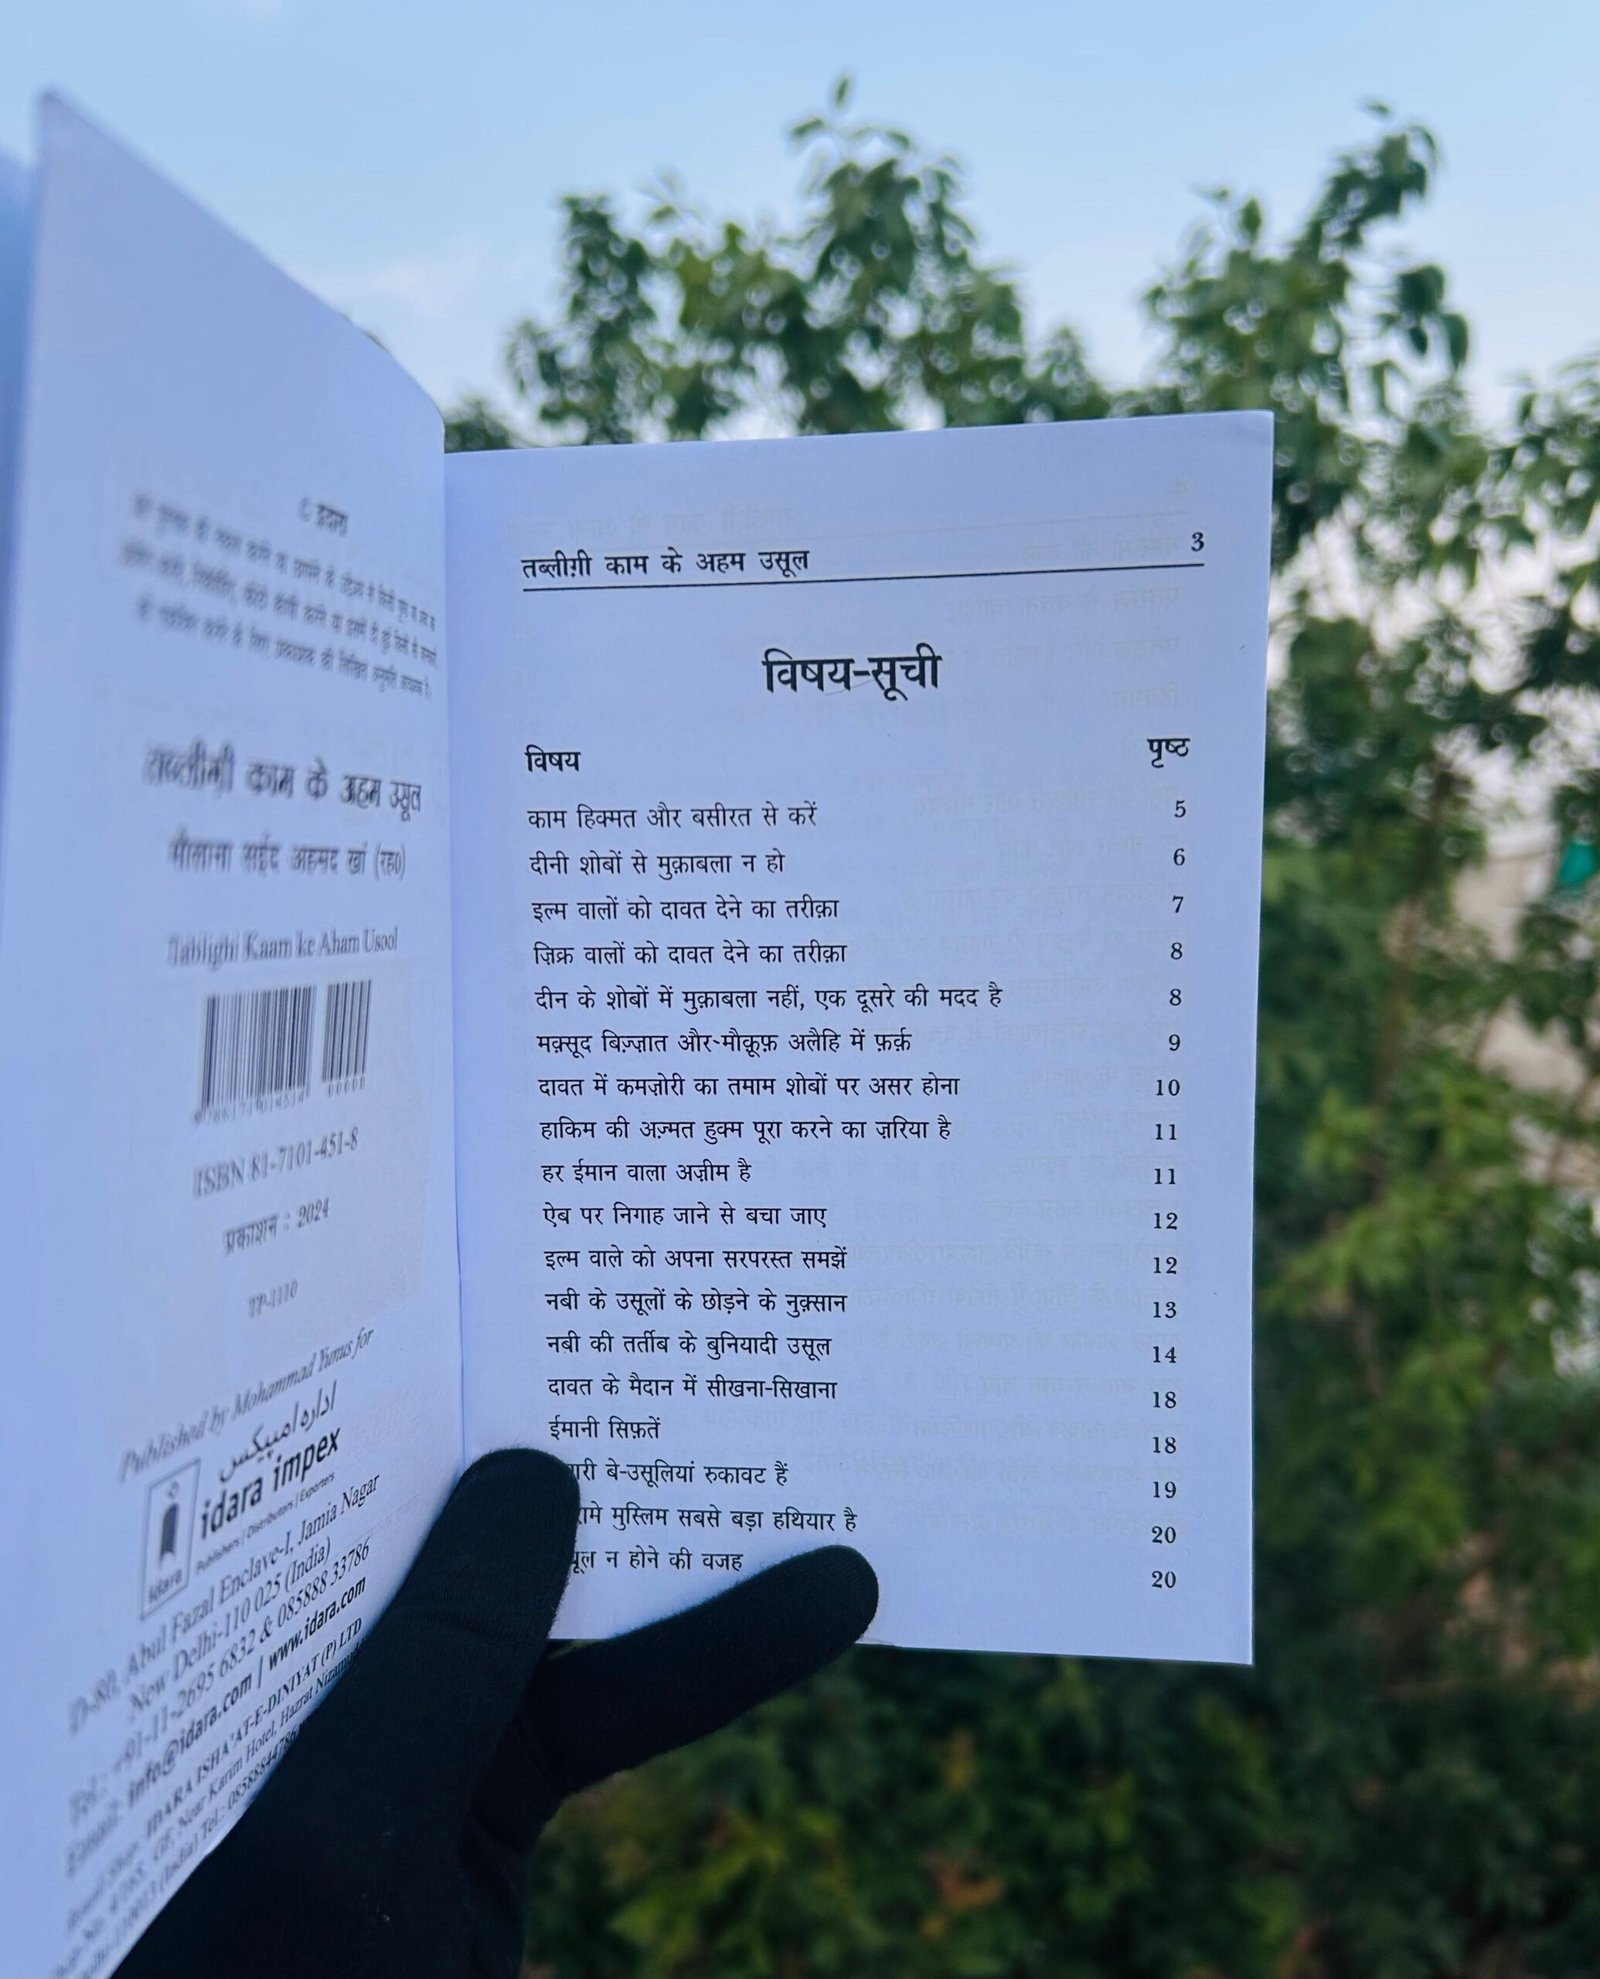 © इदारा
तब्लीग़ी काम के अहम उसूल
मौलाना सईद अहमद खां (रह०)
Tablighi Kaam ke Aham Usool
ISBN 81-7101-451-8
प्रकाशन : 2024
TP-1110
Published by Mohammad Yunus for
اداره امپیکس
idara impex
Publishers | Distributors | Exporters
idara
D-80, Abul Fazal Enclave-I, Jamia Nagar
New Delhi-110 025 (India)
Tel.: +91-11-2695 6832 & 085888 33786
Email: info@idara.com | www.idara.com
IDARA ISHA'AT-E-DINIYAT (P) LTD
तब्लीग़ी काम के अहम उसूल 3
विषय-सूची
विषय पृष्ठ
काम हिक्मत और बसीरत से करें 5
दीनी शोबों से मुक़ाबला न हो 6
इल्म वालों को दावत देने का तरीक़ा 7
ज़िक्र वालों को दावत देने का तरीक़ा 8
दीन के शोबों में मुक़ाबला नहीं, एक दूसरे की मदद है 8
मक़्सूद बिज़्ज़ात और मौक़ूफ़ अलैहि में फ़र्क़ 9
दावत में कमज़ोरी का तमाम शोबों पर असर होना 10
हाकिम की अज़्मत हुक्म पूरा करने का ज़रिया है 11
हर ईमान वाला अज़ीम है 11
ऐब पर निगाह जाने से बचा जाए 12
इल्म वाले को अपना सरपरस्त समझें 12
नबी के उसूलों के छोड़ने के नुक़्सान 13
नबी की तर्तीब के बुनियादी उसूल 14
दावत के मैदान में सीखना-सिखाना 18
ईमानी सिफ़तें 18
बे-उसूलियां रुकावट हैं 19
मुस्लिम सबसे बड़ा हथियार है 20
न होने की वजह 20